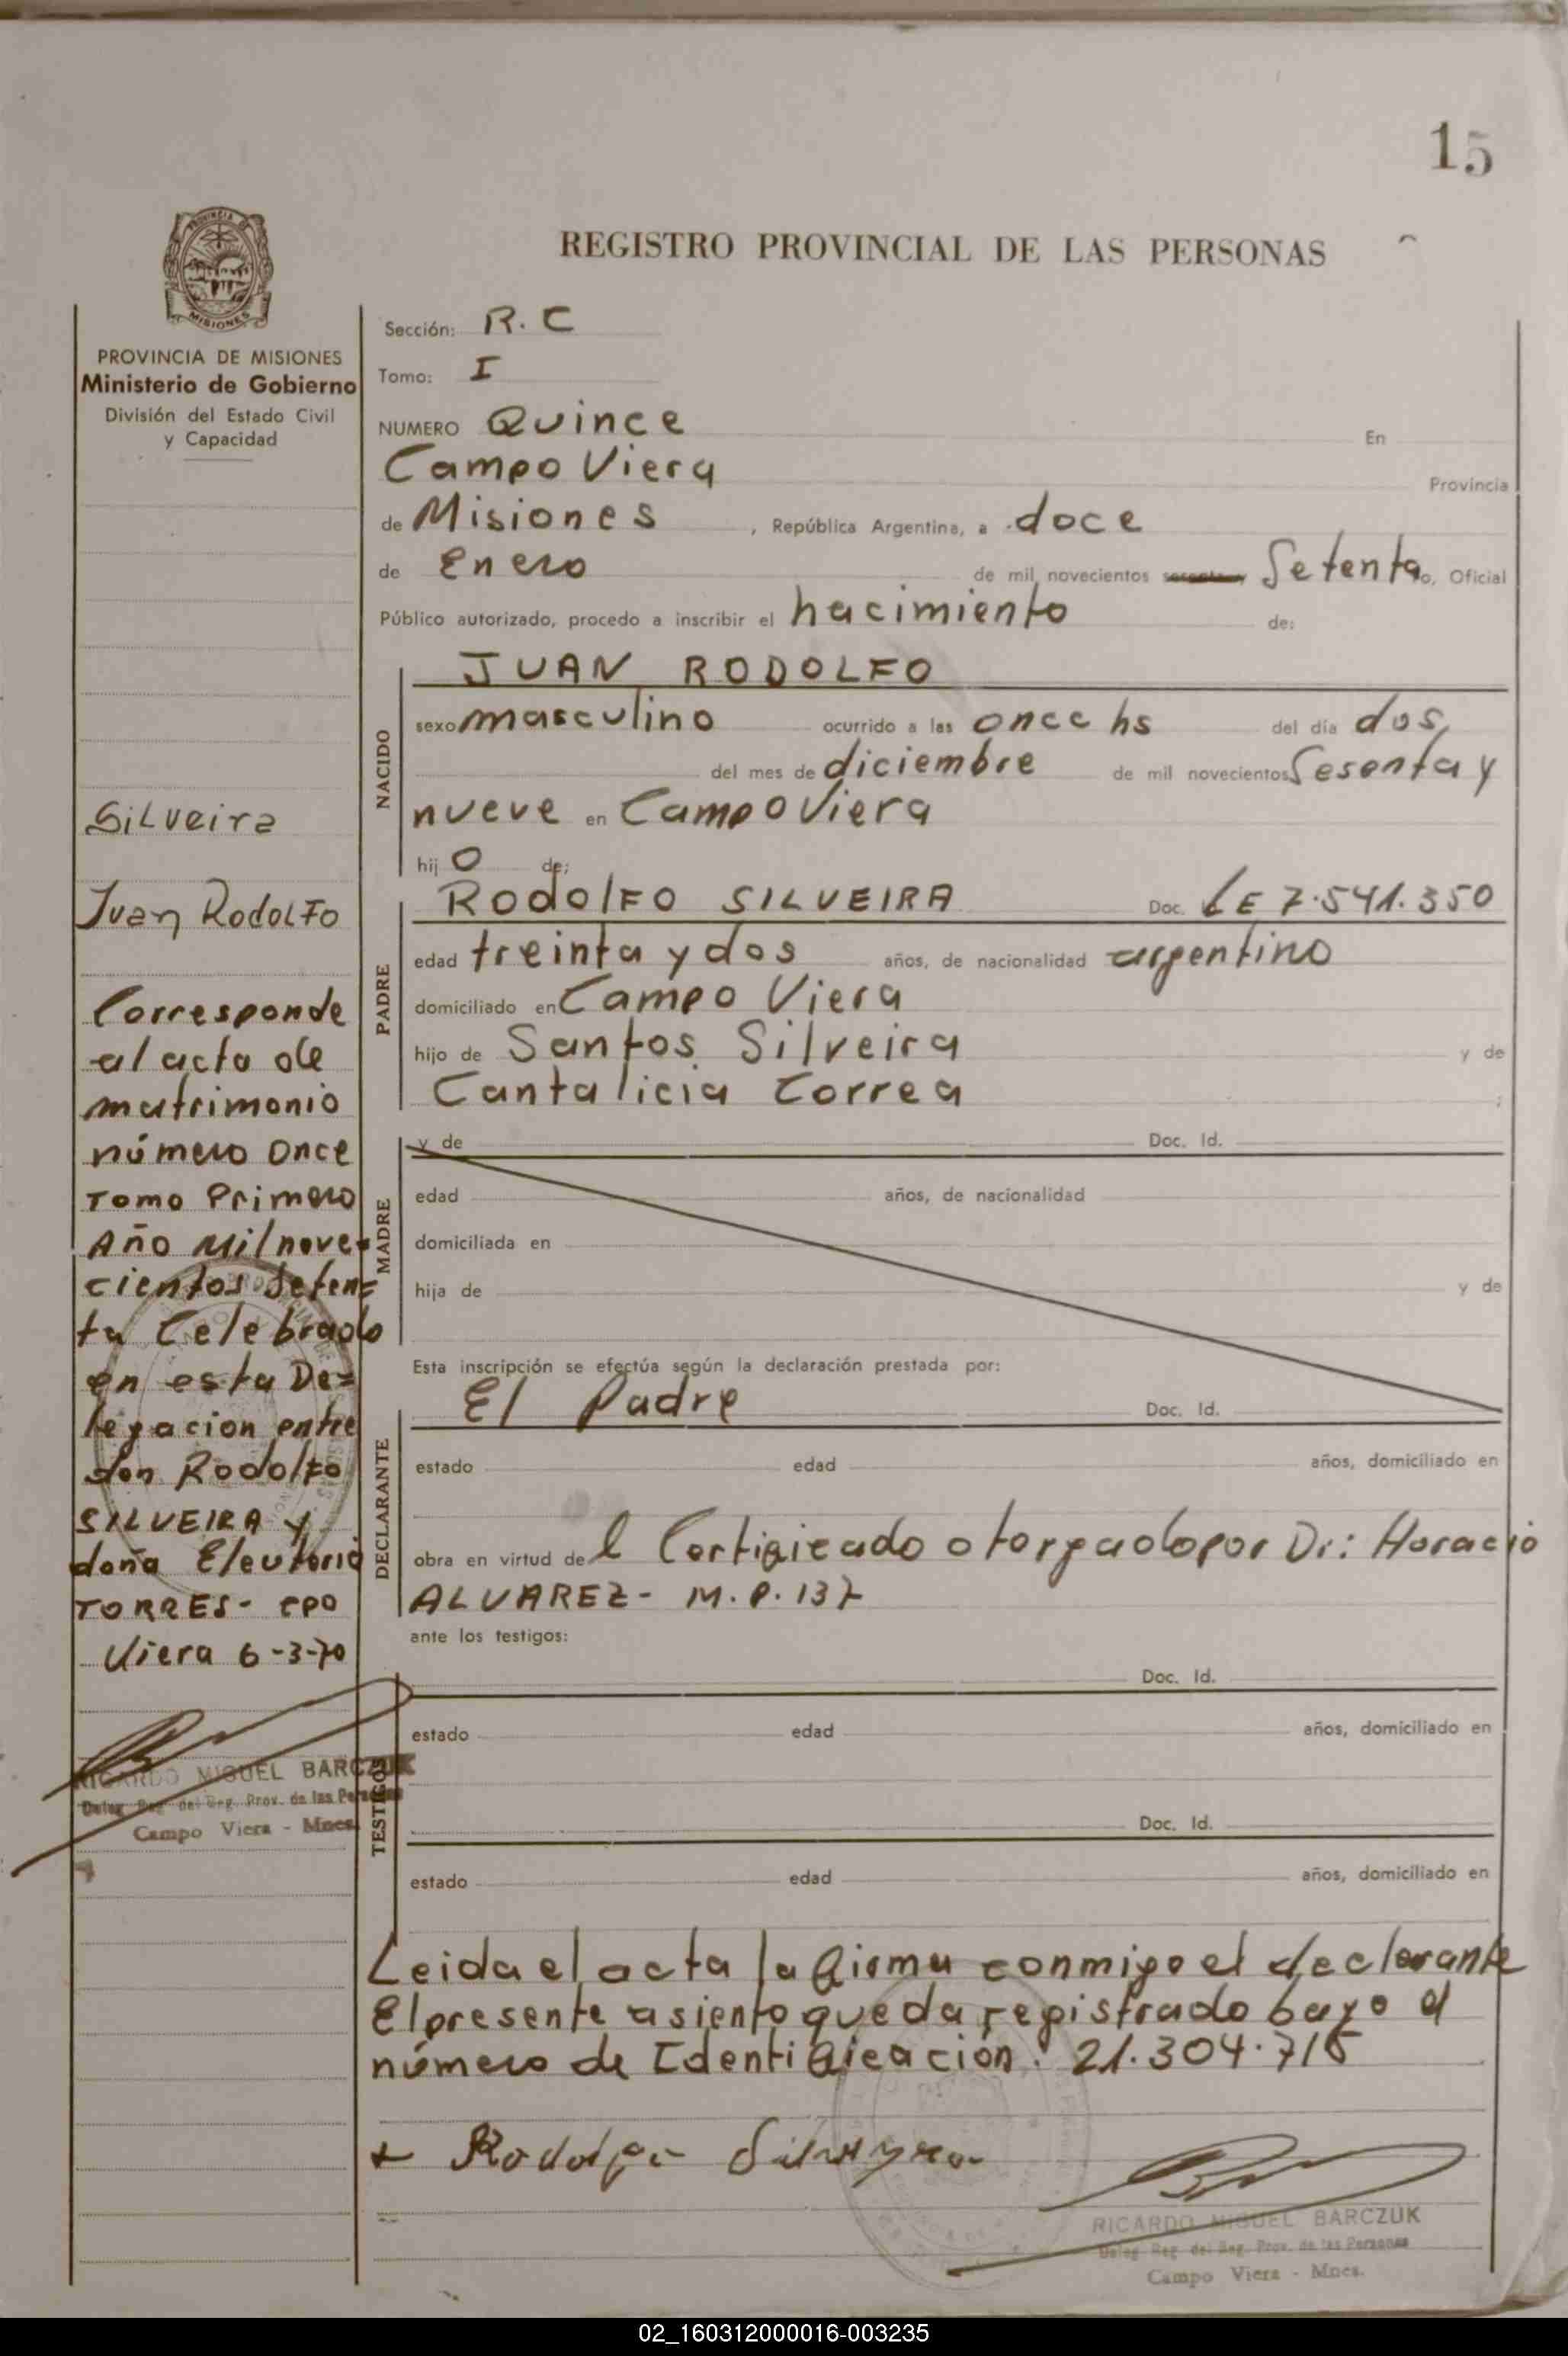 15
REGISTRO PROVINCIAL DE LAS PERSONAS
PROVINCIA DE MISIONES
Ministerio de Gobierno
División del Estado Civil
y Capacidad
Silveira
Juan Rodolfo
Corresponde
al acta de
matrimonio
número Once
Tomo Primero
Año Mil nove=
cientos Seten=
ta Celebrado
en esta De=
legacion entre
don Rodolfo
SILVEIRA y
doña Eleuteria
TORRES- CPO
Viera 6-3-70
RICARDO MIGUEL BARCZUK
Deleg. Reg. del Reg. Prov. de las Personas
Campo Viera - Mnes.
Sección: R.C
Tomo: I
NUMERO Quince En
Campo Viera Provincia
de Misiones , República Argentina, a doce
de Enero de mil novecientos Setenta o, Oficial
Público autorizado, procedo a inscribir el nacimiento de:
NACIDO
JUAN RODOLFO
sexo masculino ocurrido a las once hs del día dos
del mes de diciembre de mil novecientos Sesenta y
nueve en Campo Viera
hij o de:
PADRE
Rodolfo SILVEIRA Doc. LE 7.541.350
edad treinta y dos años, de nacionalidad argentino
domiciliado en Campo Viera
hijo de Santos Silveira y de
Cantalicia Correa ;
MADRE
y de Doc. Id.
edad años, de nacionalidad
domiciliada en
hija de y de
Esta inscripción se efectúa según la declaración prestada por:
DECLARANTE
El Padre Doc. Id.
estado edad años, domiciliado en
obra en virtud de l Certificado otorgado por Dr: Horacio
ALVAREZ- M.P. 137
ante los testigos:
TESTIGOS
Doc. Id.
estado edad años, domiciliado en
Doc. Id.
estado edad años, domiciliado en
Leida el acta la firma conmigo el declarante
El presente asiento queda registrado bajo el
número de Identificación: 21.304.715
Rodolfo Silveyra
RICARDO MIGUEL BARCZUK
Deleg. Reg. del Reg. Prov. de las Personas
Campo Viera - Mnes.
02_160312000016-003235